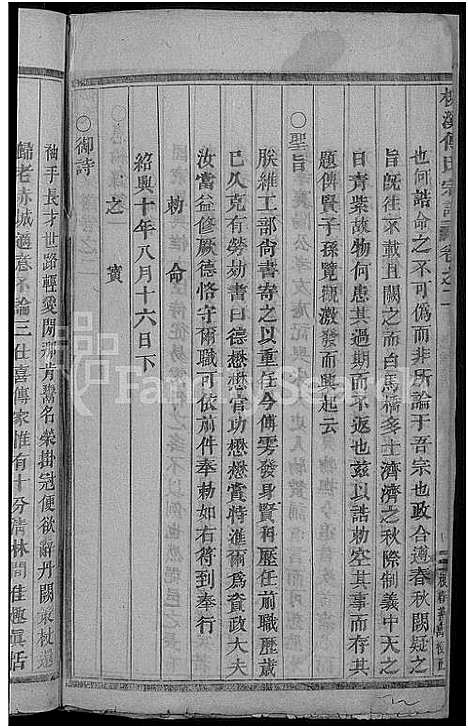 桃溪傅氏宗譜 卷之二
也何誥命之不可僞而非所論于吾宗也政合遵春秋闕疑之
旨旣往不載且闕之而白馬橋多士濟濟之秋際制義中天之
日青紫故物何患其過期而不返也玆以誥勅空其事而存其
題俾賢子孫覽觀激發而興起云
○聖旨
朕維工部尙書寄之以重任今傅雱發身賢科歷任前職歷歲
已久克有勞勚書曰德懋懋官功懋懋賞特進爾爲資政大夫
汝當益修厥德恪守爾職可依前件奉勅如右符到奉行
勅命
紹興十年八月十六日下
之寶
○御詩
袖手長才世路輕愛閒那肯鶩名榮掛冠便欲辭丹闕策杖還
歸老赤城適意不論三仕喜傳家惟有十分淸林間佳趣眞活
FamilySearch